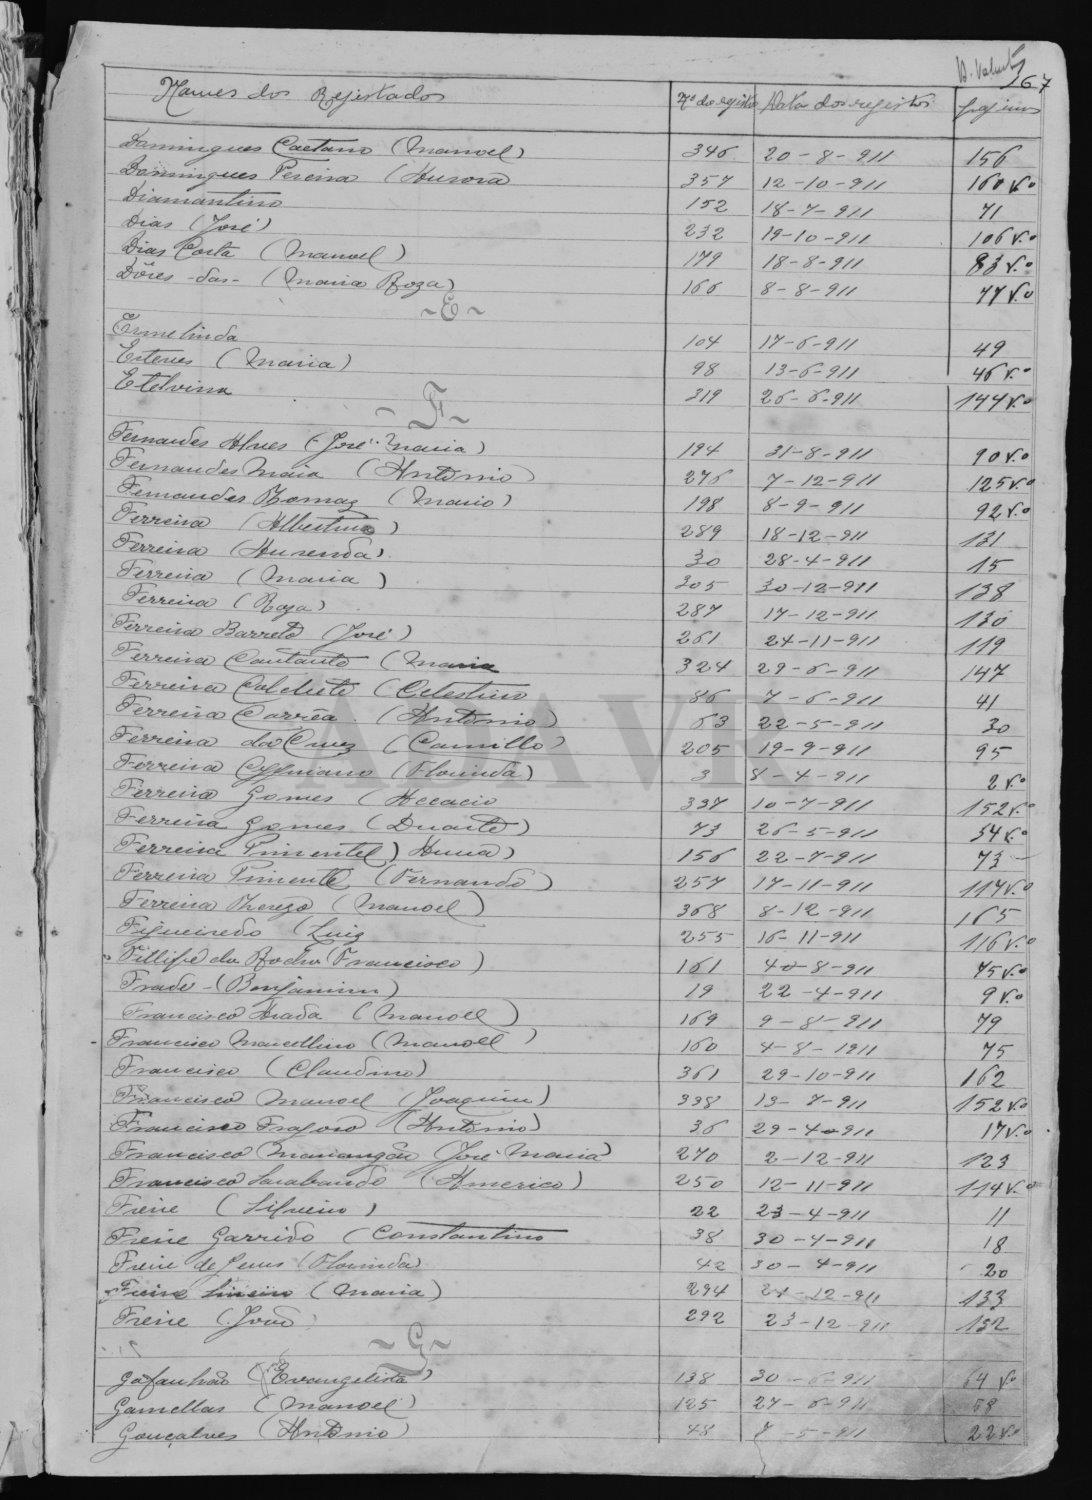 167
Nomes dos Registados Nº do registo Data dos registos paginas
Domingues Caetano (Manoel) 346 20-8-911 156
Domingues Pereira (Aurora 357 12-10-911 160 v.o
Diamantino 152 18-7-911 71
Dias (José) 232 19-10-911 106 v.o
Dias Costa (Manoel) 179 18-8-911 83 v.o
Dôres -das- (Maria Roza) 166 8-8-911 77 v.o
~E~
Ermelinda 104 17-6-911 49
Esteves (Maria) 98 13-6-911 46 v.o
Etelvina 319 26-6-911 144 v.o
~F~
Fernandes Alves (José Maria) 194 31-8-911 90 v.o
Fernandes Maia (Antonio) 276 7-12-911 125 v.o
Fernandes Thomaz (Mario) 198 8-9-911 92 v.o
Ferreira (Albertino) 289 18-12-911 131
Ferreira (Ausenda) 30 28-4-911 15
Ferreira (Maria) 305 30-12-911 138
Ferreira (Roza) 287 17-12-911 130
Ferreira Barreto (José) 261 24-11-911 119
Ferreira Cantante (Maria 324 29-6-911 147
Ferreira (Celestino 86 7-6-911 41
Ferreira Corrêa (Antonio) 63 22-5-911 30
Ferreira da Cruz (Camillo) 205 19-9-911 95
Ferreira Cypriano (Florinda) 3 8-4-911 2 v.o
Ferreira Gomes (Accacio 337 10-7-911 152 v.o
Ferreira Gomes (Duarte) 73 26-5-911 34 v.o
Ferreira Pimentel) Anna) 156 22-7-911 73
Ferreira Pimentel (Fernando) 257 17-11-911 117 v.o
Ferreira (Manoel) 368 8-12-911 165
Figueiredo (Luiz 255 16-11-911 116 v.o
Fillipe da Rocha (Francisco) 161 4-8-911 75 v.o
Frade - (Benjamim) 19 22-4-911 9 v.o
Francisco (Manoel) 169 9-8-911 79
Francisco Marcellino (Manoel) 160 4-8-1911 75
Francisco (Claudino) 361 29-10-911 162
Francisco Manoel (Joaquim) 338 13-7-911 152 v.o
Francisco Fragoso (Antonio) 36 29-4-911 17 v.o
Francisco (José Maria) 270 2-12-911 123
Francisco Sarabando (Americo) 250 12-11-911 114 v.o
Freire (Silverio) 22 23-4-911 11
Freire Garrido (Constantino 38 30-4-911 18
Freire de Jesus (Florinda) 42 30-4-911 20
Freire (Maria) 294 24-12-911 133
Freire (João) 292 23-12-911 132
~G~
Gafanhão (Evangelista) 138 30-6-911 64 v.o
Gamellas (Manoel) 125 27-6-911 58
Gonçalves (Antonio) 48 7-5-911 22 v.o
ADAVR